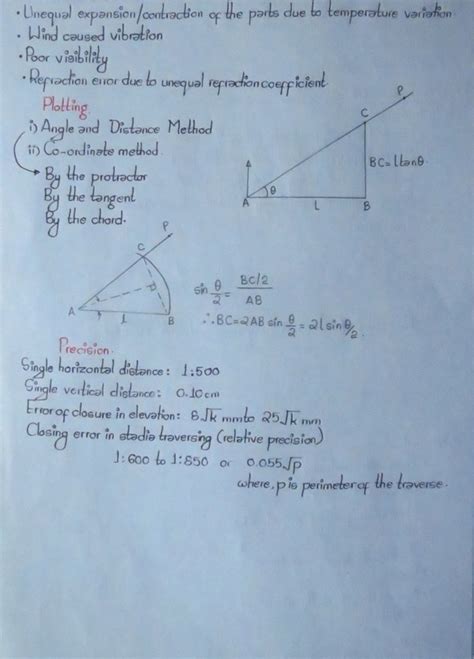 • Unequal expansion/contraction of the parts due to temperature variation.
• Wind caused vibration
• Poor visibility
• Refraction error due to unequal refraction coefficient.
Plotting
i) Angle and Distance Method
ii) Co-ordinate method.
By the protractor
By the tangent
By the chord.
P
C
BC = l tanθ.
A
θ
L
B
P
C
A
l
B
sin θ/2 = BC/2 / AB
∴ BC = 2AB sin θ/2 = 2l sin θ/2.
Precision.
Single horizontal distance: 1:500
Single vertical distance: 0.10cm
Error of closure in elevation: 8√k mm to 25√k mm
Closing error in stadia traversing (relative precision)
1:600 to 1:850 or 0.055√p
where, p is perimeter of the traverse.